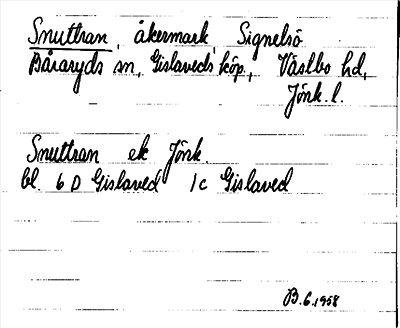 Snuttran, åkermark, Signelsö
Båraryds sn, Gislaveds köp., Västbo hd,
Jönk. l.
Snuttran ek Jönk.
bl. 6 D Gislaved 1c Gislaved
B.6.1958